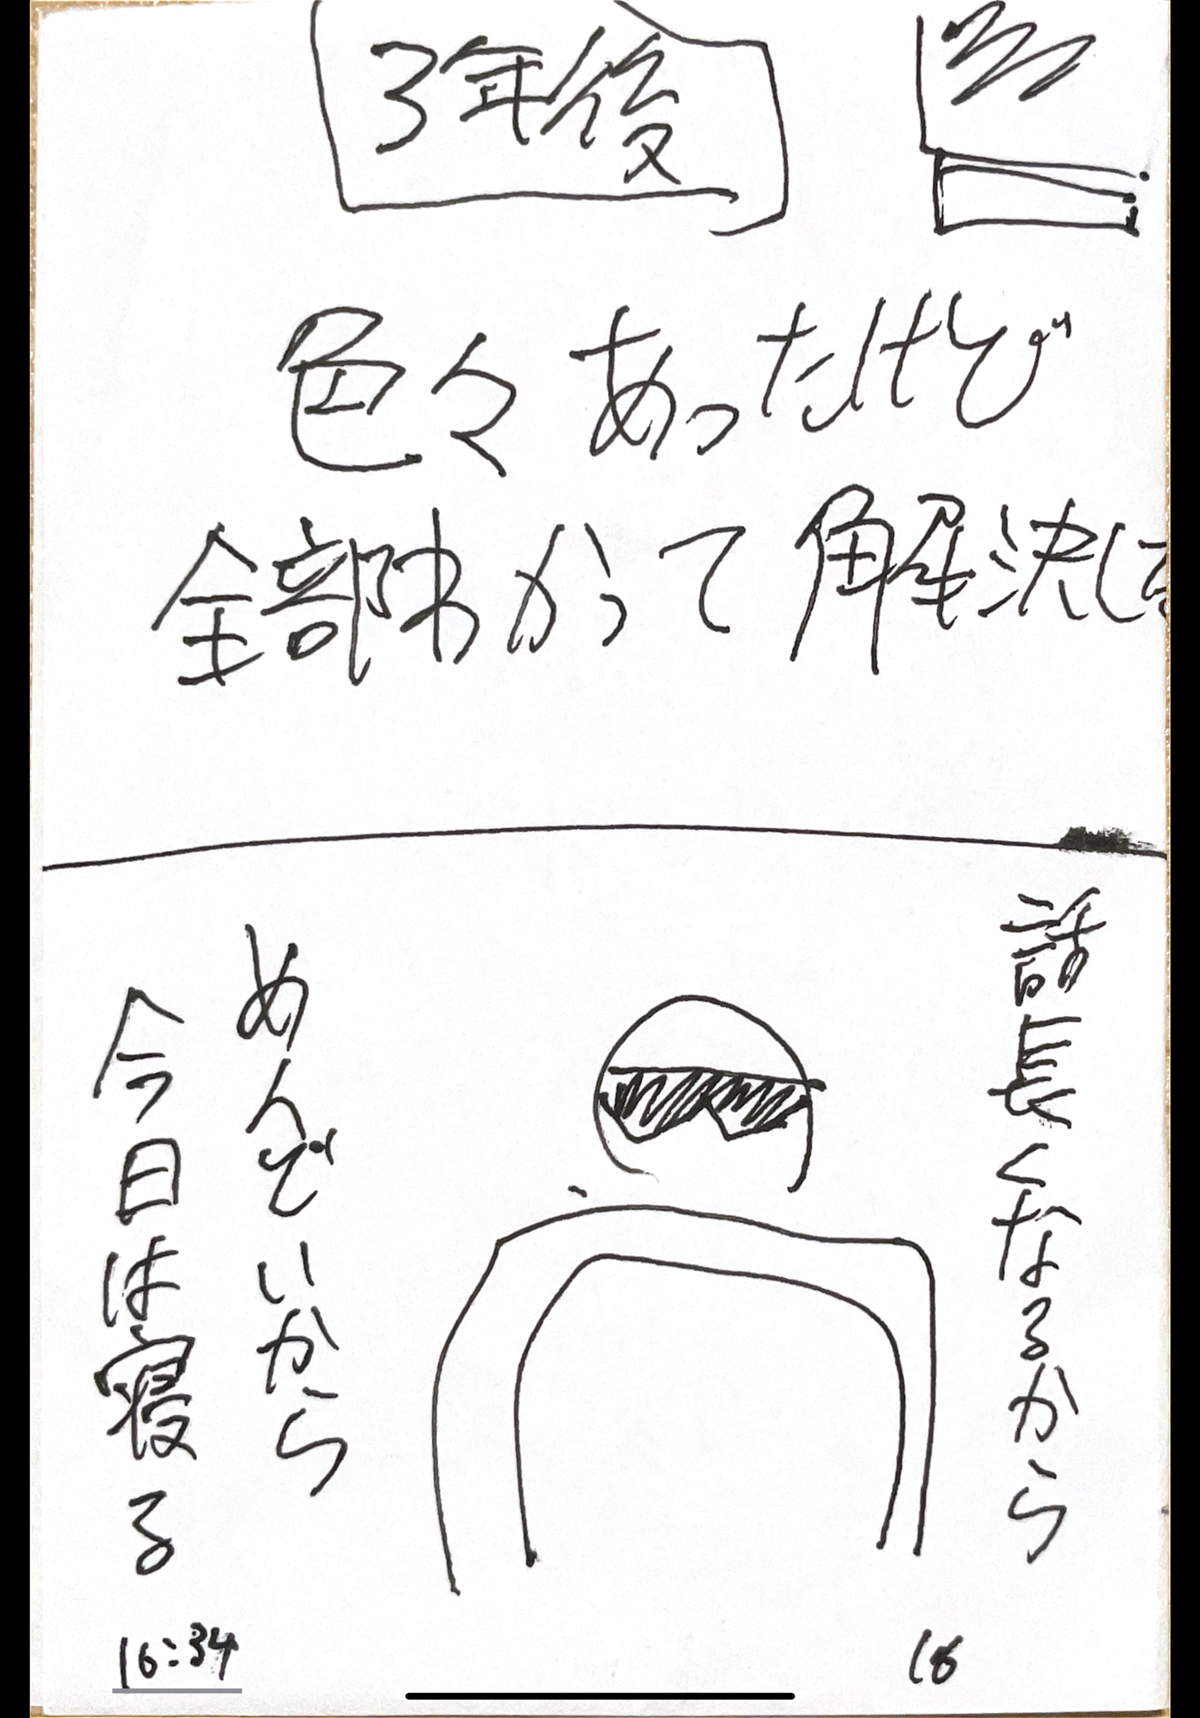 3年後
色々あったけど
全部わかって解決した
話長くなるから
めんどいから
今日は寝る
16:34
16